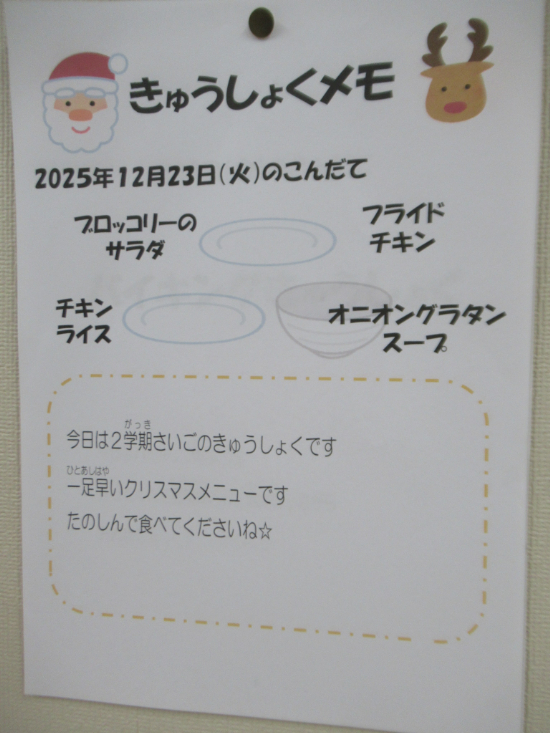 きゅうしょくメモ
2025年12月23日(火)のこんだて
ブロッコリーの
サラダ
フライド
チキン
チキン
ライス
オニオングラタン
スープ
がっき
今日は2学期さいごのきゅうしょくです
ひとあしはや
一足早いクリスマスメニューです
たのしんで食べてくださいね☆